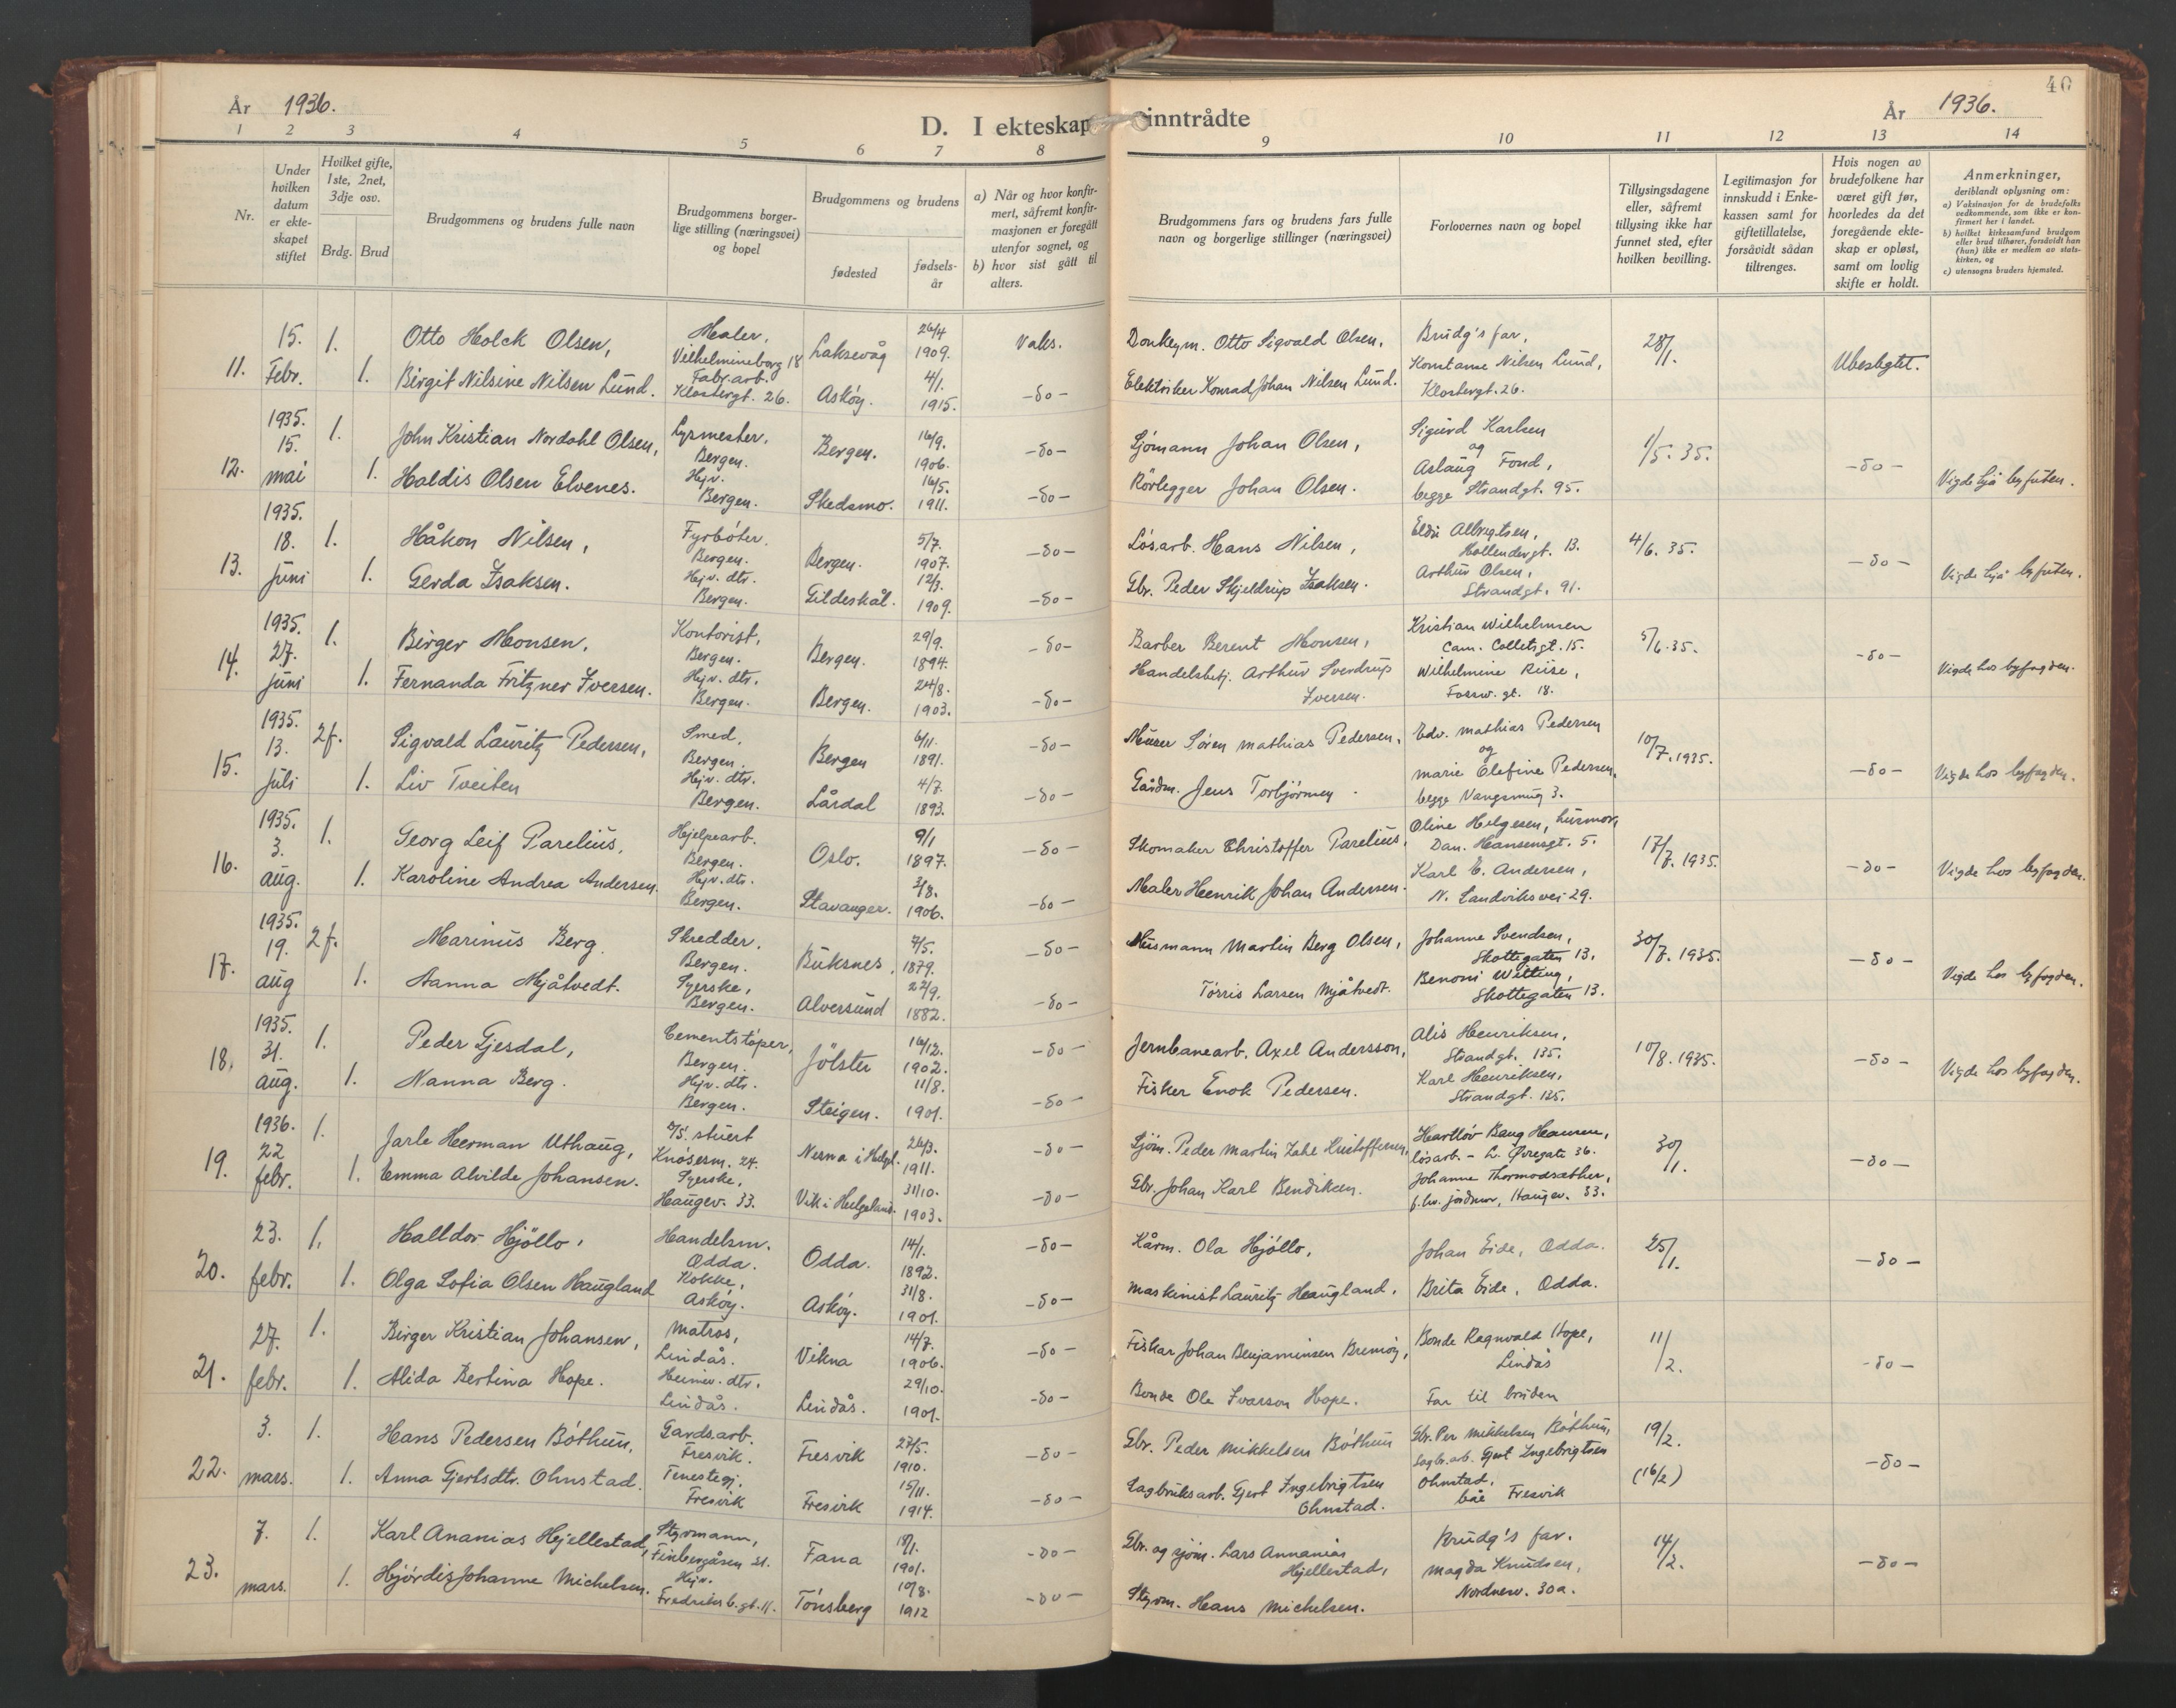 År 1936.
D. I ekteskap
1 2 3 4 5 6 7 8
Nr.
Under hvilken datum er ekteskapet stiftet
Hvilket gifte, 1ste, 2net, 3dje osv.
Brdg. Brud
Brudgommens og brudens fulle navn
Brudgommens borgerlige stilling (næringsvei) og bopel
Brudgommens og brudens
fødested
fødselsår
a) Når og hvor konfirmert, såfremt konfirmasjonen er foregått utenfor sognet, og
b) hvor sist gått til alters.
11. 15. Febr.
1. Otto Holck Olsen, Maler, Vilhelmineborg 18 Laksevåg 26/4 1909. Vaks.
1. Birgit Nilsine Nilsen Lund. Fabr.arb. Klostergt. 26. Askøy. 4/1. 1915. -do-
12. 1935. 15. mai
1. John Kristian Nordahl Olsen, Bergen. Bergen. 16/9. 1906. -do-
1. Haldis Olsen Elvenes. Hjv. Bergen. Skedsmo. 16/5. 1911. -do-
13. 1935. 18. juni
1. Håkon Nilsen, Fyrbøter. Bergen. Bergen. 5/7. 1907. -do-
1. Gerda Isaksen. Hjv. dtr. Bergen. Gildeskål. 12/3. 1909. -do-
14. 1935. 27. juni
1. Birger Monsen, Kontorist, Bergen. Bergen. 29/9. 1894. -do-
1. Fernanda Fritzner Iversen. Hjv. dtr. Bergen. Bergen. 24/8. 1903. -do-
15. 1935. 13. juli
2f. Sigvald Lauritz Pedersen, Smed, Bergen. Bergen 6/11. 1891. -do-
1. Liv Tveiten Hjv. dtr. Bergen. Lårdal 4/7. 1893. -do-
16. 1935. 3. aug.
1. Georg Leif Parelius, Hjelpearb. Bergen. Oslo. 9/1 1897. -do-
1. Karoline Andrea Andersen. Hjv. dtr. Bergen. Stavanger. 3/8. 1906. -do-
17. 1935. 19. aug
2f. Marinus Berg. Skredder. Bergen. Buksnes. 7/5. 1879. -do-
1. Hanna Mjåtvedt. Syerske, Bergen. Alversund 22/9. 1882. -do-
18. 1935. 31. aug.
1. Peder Gjesdal, Cementstøper, Bergen. Jölster 16/12. 1902. -do-
1. Nanna Berg. Hjv. dtr. Bergen. Steigen. 11/8. 1901. -do-
19. 1936. 22 febr.
1. Jarle Herman Uthaug, stuert Knøsesm. 24. Nesna i Helgl. 26/3. 1911. -do-
1. Emma Alvilde Johansen. Syerske, Haugev. 33. Vik i Helgeland. 31/10. 1903. -do-
20. 23. febr.
1. Halldor Hjöllo, Handelsm. Odda. Odda. 14/1. 1892. -do-
1. Olga Sofia Olsen Haugland Kokke, Askøy. Askøy. 31/8. 1901. -do-
21. 27. febr.
1. Birger Kristian Johansen, Matros, Lindås. Vikna 14/7. 1906. -do-
1. Alida Bertina Hope. Heimev. dtr. Lindås. Lindås. 29/10. 1901. -do-
22. 3. mars.
1. Hans Pedersen Bøthun, Gardsarb. Fresvik. Fresvik 27/5. 1910. -do-
1. Anna Gjertsdtr. Ohnstad. Tenestegj. Fresvik Fresvik 15/11. 1914. -do-
23. 7. mars.
1. Karl Ananias Hjellestad, Styrmann, Finbergåsen 21. Fana 18/1. 1901. -do-
1. Hjørdis Johanne Michelsen. Hjv. Fredriksb.gt. 11. Tønsberg 10/8. 1912 -do-
inntrådte
År 1936. 40
9 10 11 12 13 14
Brudgommens fars og brudens fars fulle navn og borgerlige stillinger (næringsvei)
Forlovernes navn og bopel
Tillysingsdagene eller, såfremt tillysing ikke har funnet sted, efter hvilken bevilling.
Legitimasjon for innskudd i Enkekassen samt for giftetillatelse, forsåvidt sådan tiltrenges.
Hvis nogen av brudefolkene har været gift før, hvorledes da det foregående ekteskap er opløst, samt om lovlig skifte er holdt.
Anmerkninger, deriblandt oplysning om:
a) Vaksinasjon for de brudefolks vedkommende, som ikke er konfirmert her i landet.
b) hvilket kirkesamfund brudgom eller brud tilhører, forsåvidt han (hun) ikke er medlem av statskirken, og
c) utensogns bruders hjemsted.
Donkeym. Otto Sigvald Olsen, Brudg's far, 28/1. Ubeslegtet.
Elektriker Konrad Johan Nilsen Lund. Konstanse Nilsen Lund, Klostergt. 26.
Sjömann Johan Olsen, Sigurd Karlsen og 1/5. 35. -do- Vigde hjå byfuten.
Rørlegger Johan Olsen. Aslaug Fond, begge Strandgt. 95.
Løsarb. Hans Nilsen, Albrigtsen, Hollendergt. 13. 4/6. 35. -do- Vigde hjå byfuten.
Gbr. Peder Skjeldrup Isaksen. Arthur Olsen, Strandgt. 91.
Barber Berent Monsen, Kristian Wilhelmsen Cam. Colletsgt. 15. 5/6. 35. -do- Vigde hos byfogden.
Handelsbetj. Arthur Sverdrup Iversen. Wilhelmine Riise, Fossw. gt. 18.
Murer Søren Mathias Pedersen, Edv. Mathias Pedersen og 10/7. 1935. -do- Vigde hos byfogden.
Gårdm. Jens Torbjörnsen. Marie Olefine Pedersen, begge Vangsmug 3.
Skomaker Christoffer Parelius, Oline Helgesen, Dan. Hansensgt. 5. 17/7. 1935. -do- Vigde hos byfogden.
Maler Henrik Johan Andersen. Karl E. Andersen, N. Sandviksvei 29.
Husmann Martin Berg Olsen, Johanne Svendsen, Skottegaten 13. 30/7. 1935. -do- Vigde hos byfogden.
Tørris Larsen Mjåtvedt. Benoni Witting, Skottegaten 13.
Jernbanearb. Axel Andersson, Alis Henriksen, Strandgt. 135. 10/8. 1935. -do- Vigde hos byfogden.
Fisker Enok Pedersen. Karl Henriksen, Strandgt. 135.
Sjöm. Peder Martin Zahl Kristoffersen, Bang Hansen, løsarb. - L. Øvregate 36. 30/1. -do-
Gbr. Johan Karl Bendiksen. Johanne Thormodsæther, jordmor, Haugev. 33.
Kårm. Ola Hjöllo, Johan Eide, Odda. 25/1. -do-
Maskinist Lauritz Haugland. Brita Eide, Odda.
Fiskar Johan Benjaminsen Bremøy, Bonde Ragnvald Hope, Lindås 11/2. -do-
Bonde Ole Ivarson Hope. Far til bruden
Gbr. Peder Mikkelsen Bøthun Gbr. Per Mikkelsen Bøthun, 19/2. -do-
Sagbruksarb. Gjert Ingebrigtsen Ohnstad. Sagbr.arb. Gjert Ingebrigtsen Ohnstad, båe Fresvik (16/2)
Gbr. og sjöm. Lars Annanias Hjellestad, Brudg's far. 14/2. -do-
Styrm. Hans Michelsen. Magda Knudsen, Nordnesv. 30a.